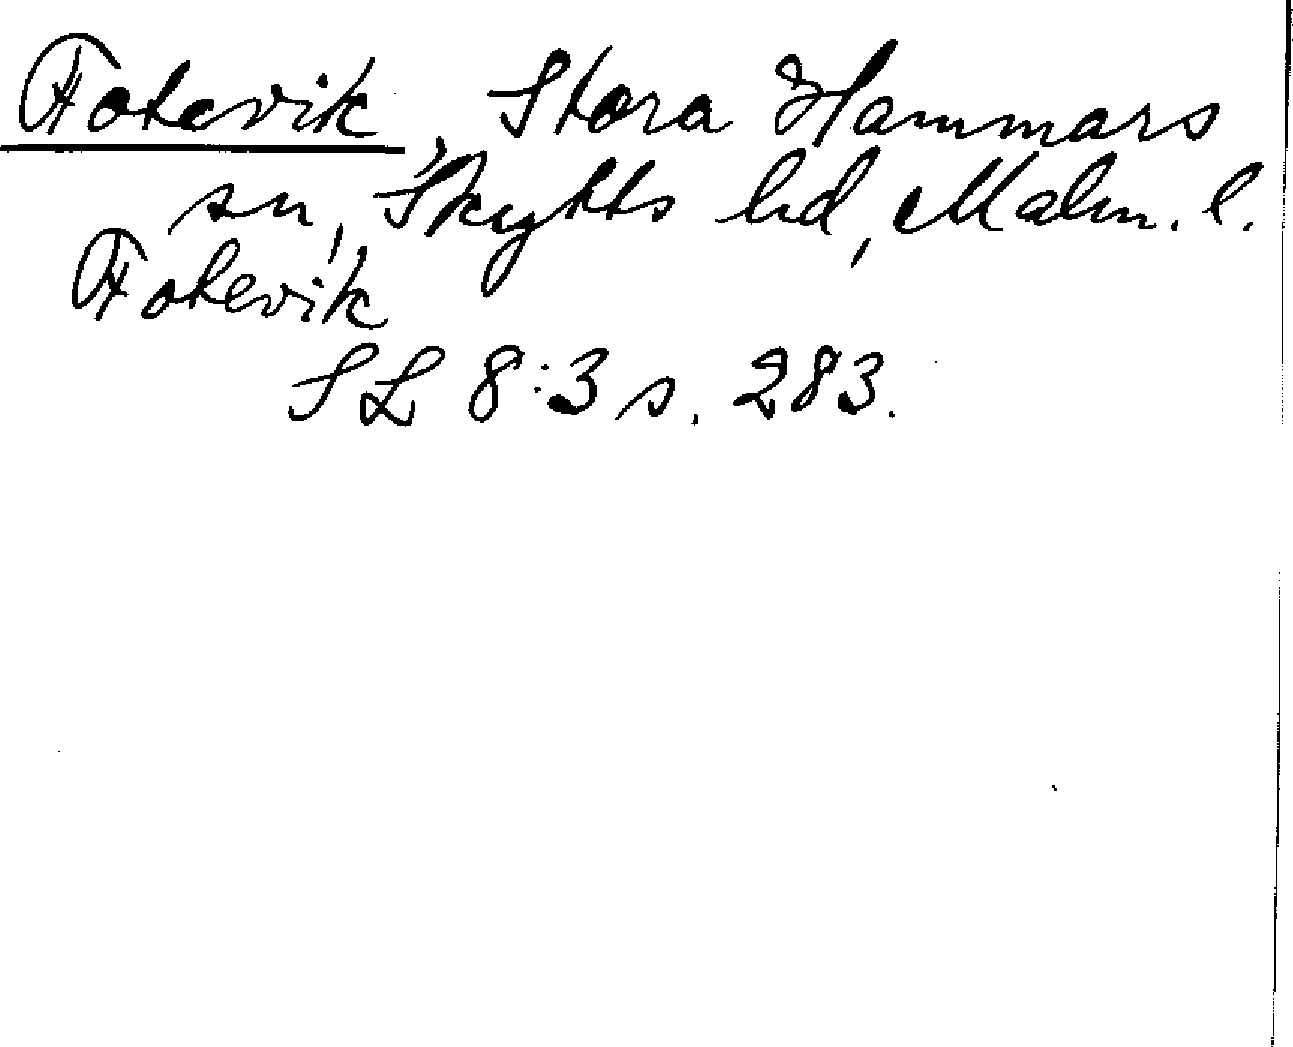 Fotevik, Stora Hammars
sn, Skytts hd, Malm. l.
Fotevik
SL 8:3 s. 283.